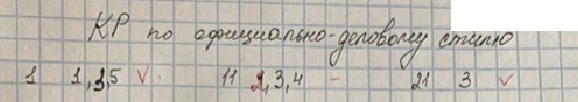 КР по официально-деловому стилю
1 1,3,5 V. 11 2,3,4 - 21 3 V